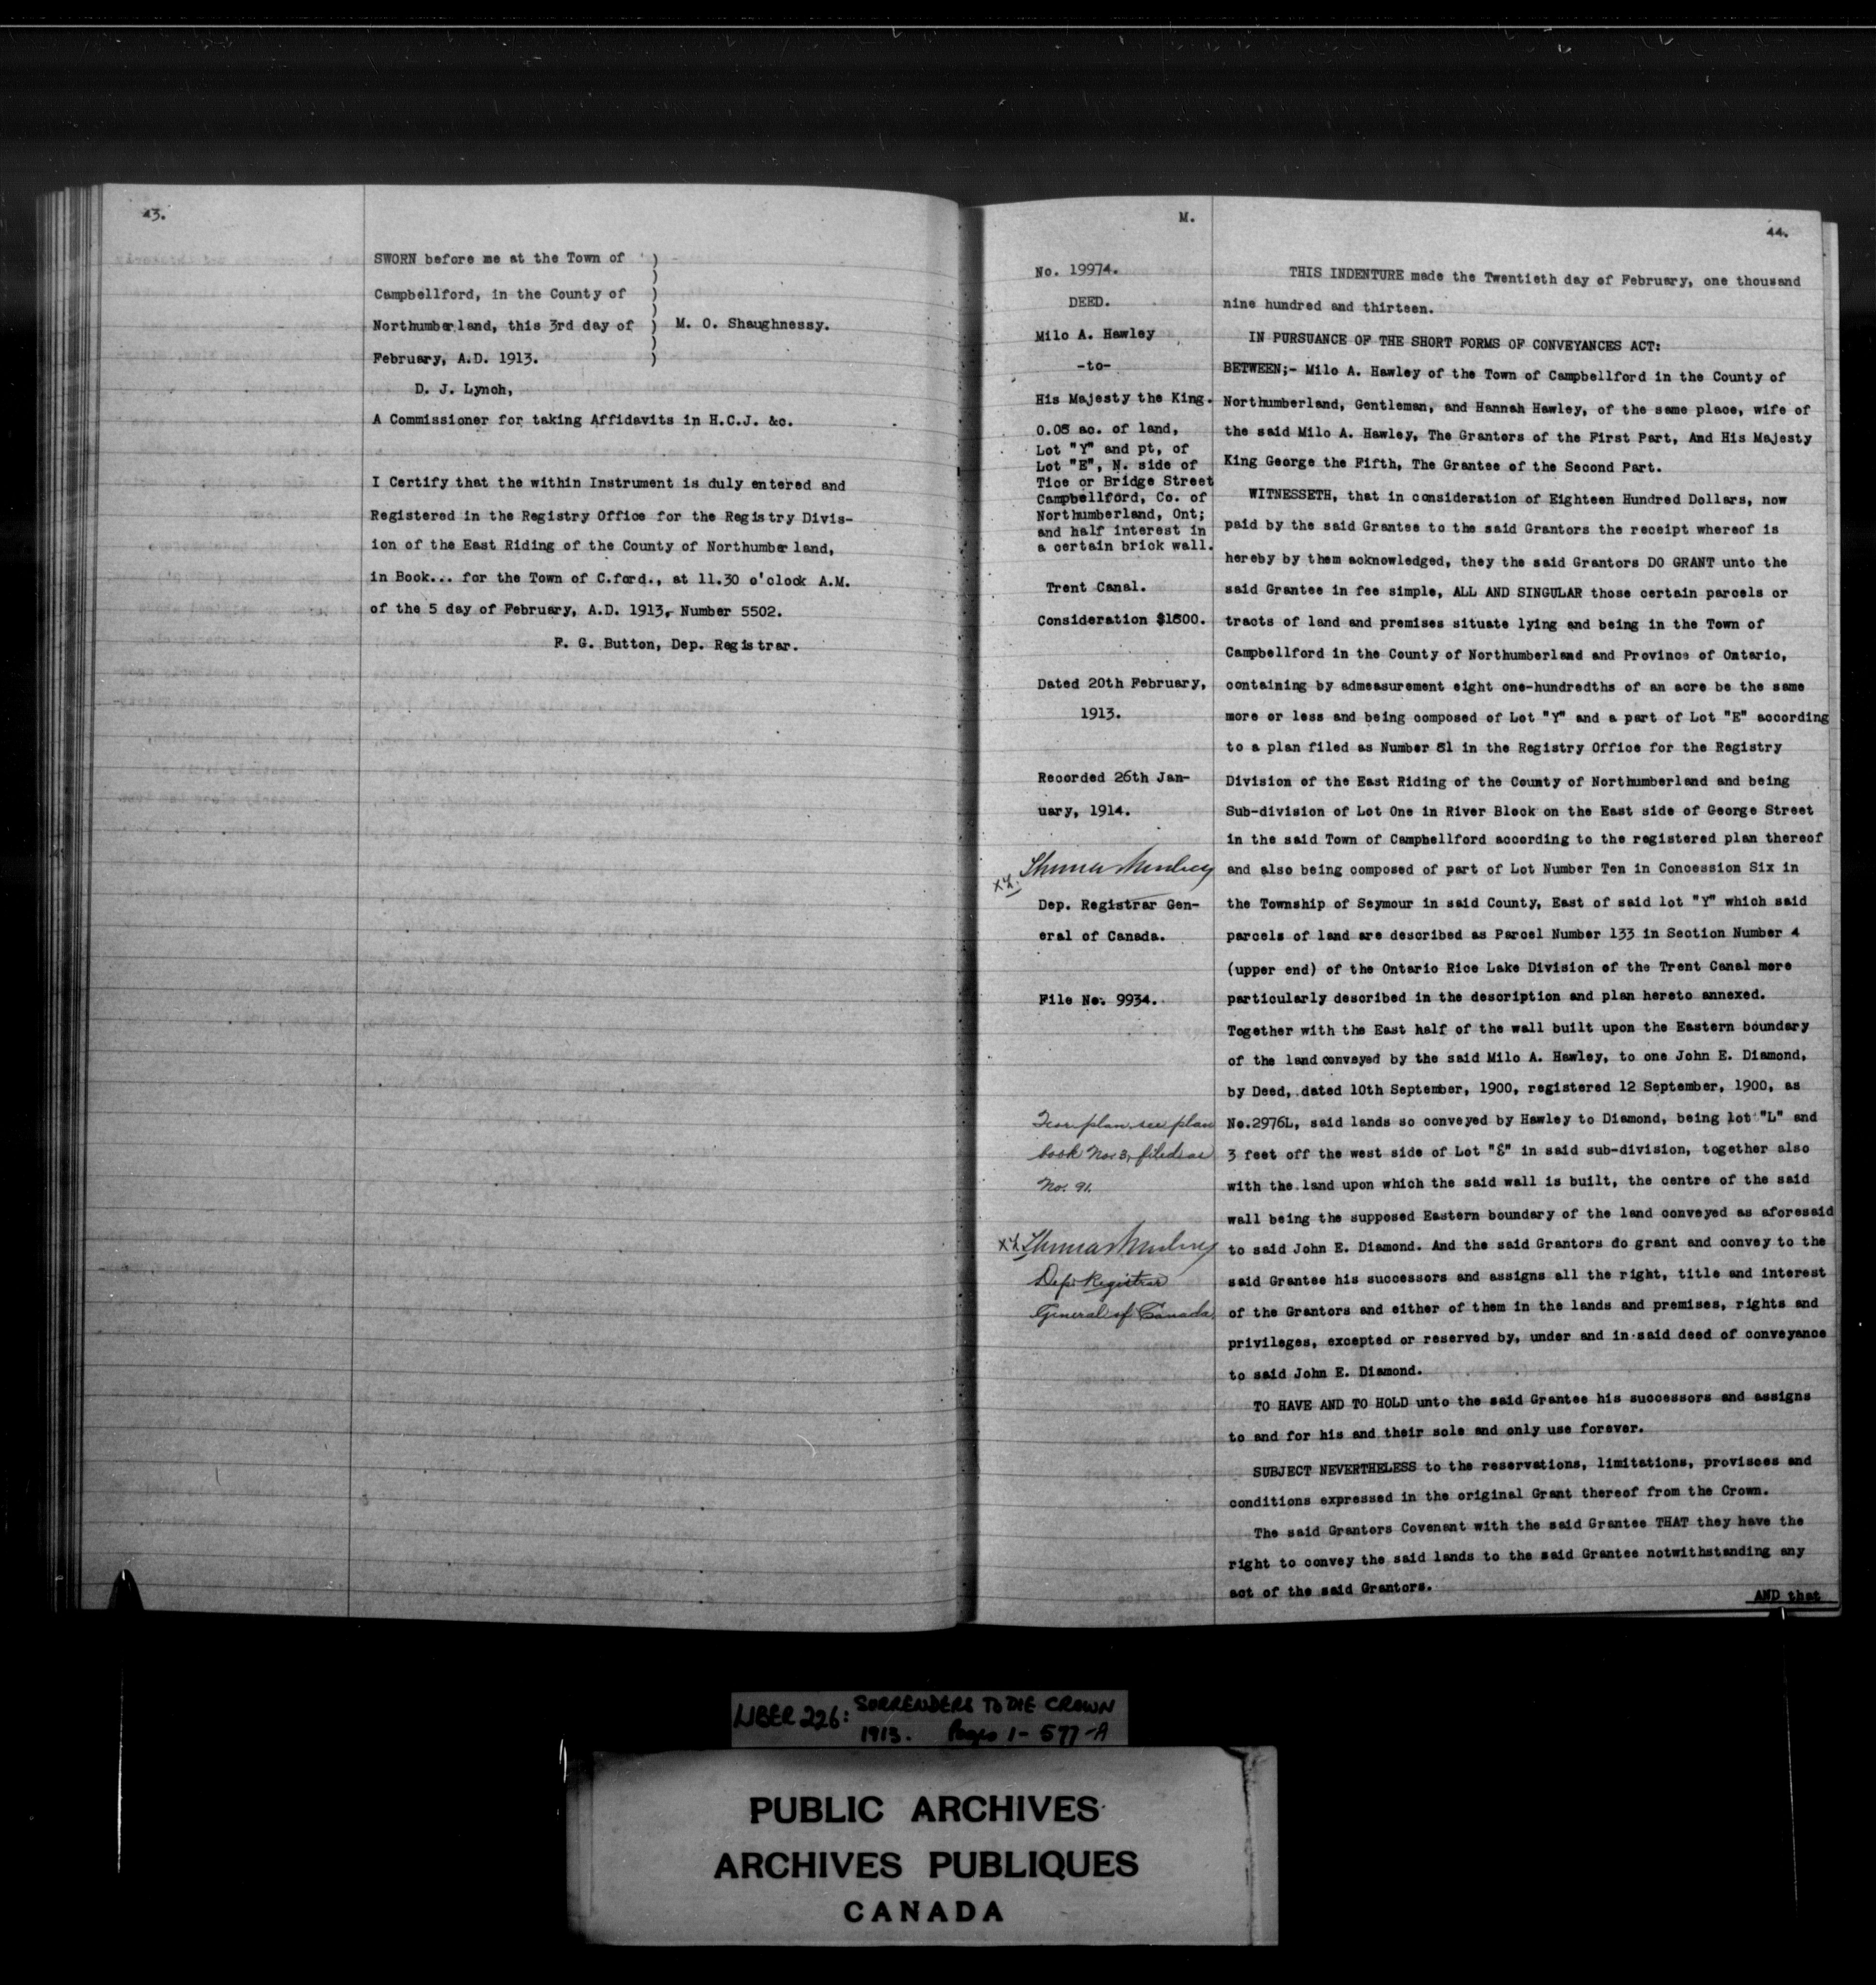 43.
SWORN before me at the Town of )
)
Campbellford, in the County of )
)
Northumberland, this 3rd day of ) M. O. Shaughnessy.
)
February, A.D. 1913. )
D. J. Lynch,
A Commissioner for taking Affidavits in H.C.J. &c.
I Certify that the within Instrument is duly entered and
Registered in the Registry Office for the Registry Divis-
ion of the East Riding of the County of Northumberland,
in Book... for the Town of C.ford., at 11.30 o'clock A.M.
of the 5 day of February, A.D. 1913, Number 5502.
F. G. Button, Dep. Registrar.
M.
No. 19974.
DEED.
Milo A. Hawley
-to-
His Majesty the King.
0.08 ac. of land,
Lot "Y" and pt, of
Lot "E", N. side of
Tice or Bridge Street
Campbellford, Co. of
Northumberland, Ont;
and half interest in
a certain brick wall.
Trent Canal.
Consideration $1800.
Dated 20th February,
1913.
Recorded 26th Jan-
uary, 1914.
Thomas Mulvey
Dep. Registrar Gen-
eral of Canada.
File No. 9934.
For plan see plan
book No. 3, filed as
No. 91.
Thomas Mulvey
Dep. Registrar
General of Canada
44.
THIS INDENTURE made the Twentieth day of February, one thousand
nine hundred and thirteen.
IN PURSUANCE OF THE SHORT FORMS OF CONVEYANCES ACT:
BETWEEN;- Milo A. Hawley of the Town of Campbellford in the County of
Northumberland, Gentleman, and Hannah Hawley, of the same place, wife of
the said Milo A. Hawley, The Grantors of the First Part, And His Majesty
King George the Fifth, The Grantee of the Second Part.
WITNESSETH, that in consideration of Eighteen Hundred Dollars, now
paid by the said Grantee to the said Grantors the receipt whereof is
hereby by them acknowledged, they the said Grantors DO GRANT unto the
said Grantee in fee simple, ALL AND SINGULAR those certain parcels or
tracts of land and premises situate lying and being in the Town of
Campbellford in the County of Northumberland and Province of Ontario,
containing by admeasurement eight one-hundredths of an acre be the same
more or less and being composed of Lot "Y" and a part of Lot "E" according
to a plan filed as Number 81 in the Registry Office for the Registry
Division of the East Riding of the County of Northumberland and being
Sub-division of Lot One in River Block on the East side of George Street
in the said Town of Camphellford according to the registered plan thereof
and also being composed of part of Lot Number Ten in Concession Six in
the Township of Seymour in said County, East of said lot "Y" which said
parcels of land are described as Parcel Number 133 in Section Number 4
(upper end) of the Ontario Rice Lake Division of the Trent Canal more
particularly described in the description and plan hereto annexed.
Together with the East half of the wall built upon the Eastern boundary
of the land conveyed by the said Milo A. Hawley, to one John E. Diamond,
by Deed, dated 10th September, 1900, registered 12 September, 1900, as
No.2976L, said lands so conveyed by Hawley to Diamond, being lot "L" and
3 feet off the west side of Lot "E" in said sub-division, together also
with the land upon which the said wall is built, the centre of the said
wall being the supposed Eastern boundary of the land conveyed as aforesaid
to said John E. Diamond. And the said Grantors do grant and convey to the
said Grantee his successors and assigns all the right, title and interest
of the Grantors and either of them in the lands and premises, rights and
privileges, excepted or reserved by, under and in said deed of conveyance
to said John E. Diamond.
TO HAVE AND TO HOLD unto the said Grantee his successors and assigns
to and for his and their sole and only use forever.
SUBJECT NEVERTHELESS to the reservations, limitations, provisoes and
conditions expressed in the original Grant thereof from the Crown.
The said Grantors Covenant with the said Grantee THAT they have the
right to convey the said lands to the said Grantee notwithstanding any
act of the said Grantors.
AND that
LIBER 226: SURRENDERS TO THE CROWN
1913. Pages 1-577-A
PUBLIC ARCHIVES
ARCHIVES PUBLIQUES
CANADA